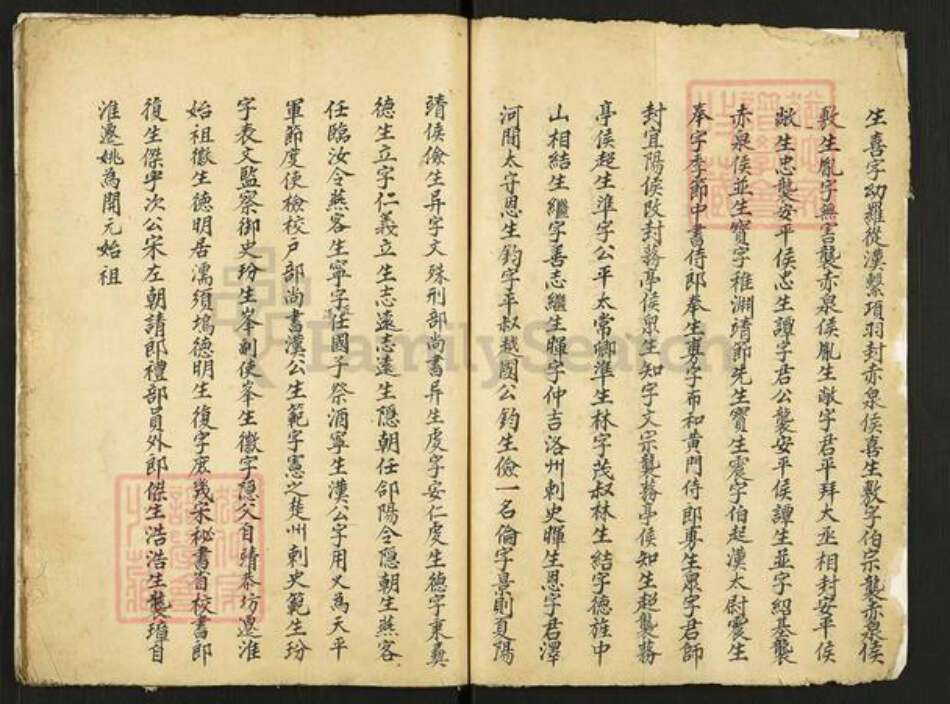 生喜字幼羅從漢繫項羽封赤泉侯喜生敷字伯宗襲赤泉侯
敷生胤字無害襲赤泉侯胤生敞字君平拜大丞相封安平侯
敞生忠襲安平侯忠生譚字君公襲安平侯譚生並字紹基襲
赤泉侯並生寶字稚淵靖節先生寶生震字伯起漢太尉震生
奉字季節中書侍郎奉生專字布和黃門侍郎專生眾字君師
封宜陽侯改封蓩亭侯眾生知字文宗襲蓩亭侯知生超襲蓩
亭侯超生準字公平太常卿準生林字茂叔林生結字德旌中
山相結生繼字善志繼生暉字仲吉洛州刺史暉生恩字君澤
河間太守恩生鈞字平叔越國公鈞生儉一名倫字景則夏陽
靖侯儉生异字文殊刑部尚書异生虔字安仁虔生德字秉彝
德生立字仁義立生志遠志遠生隱朝任郃陽令隱朝生燕客
任臨汝令燕客生寧字任國子祭酒寧生漢公字用乂為天平
軍節度使檢校戶部尚書漢公生範字憲之楚州刺史範生玢
字表文監察御史玢生峯副使峯生徽字隱父自靖恭坊遷淮
始祖徽生德明居濡須塢德明生復字庶幾宋秘書省校書郎
復生傑字次公宋左朝請郎禮部員外郎傑生浩浩生襲璋自
淮遷姚為開元始祖
FamilySearch